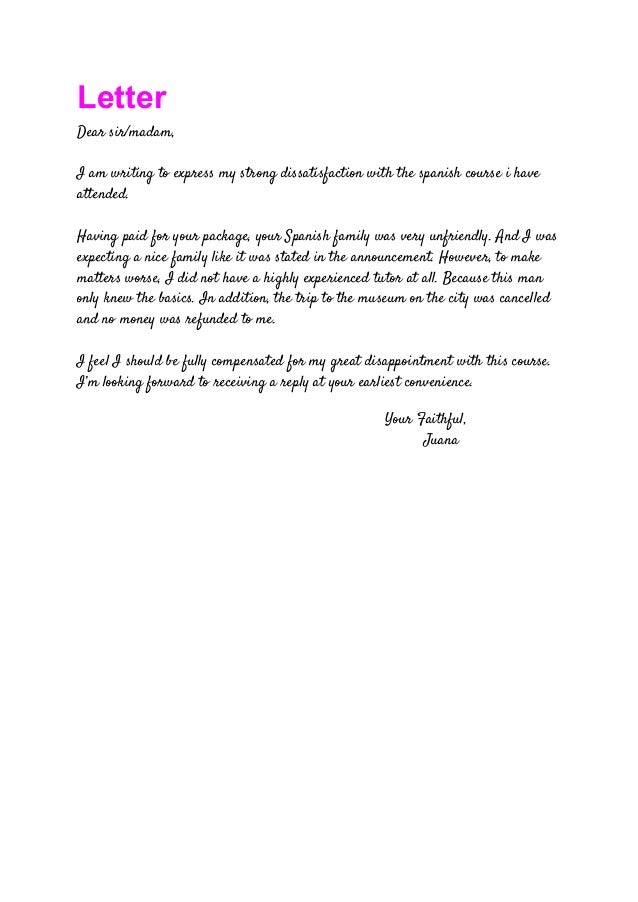 Letter
Dear sir/madam,
I am writing to express my strong dissatisfaction with the spanish course i have
attended.
Having paid for your package, your Spanish family was very unfriendly. And I was
expecting a nice family like it was stated in the announcement. However, to make
matters worse, I did not have a highly experienced tutor at all. Because this man
only knew the basics. In addition, the trip to the museum on the city was cancelled
and no money was refunded to me.
I feel I should be fully compensated for my great disappointment with this course.
I'm looking forward to receiving a reply at your earliest convenience.
Your Faithful,
Juana